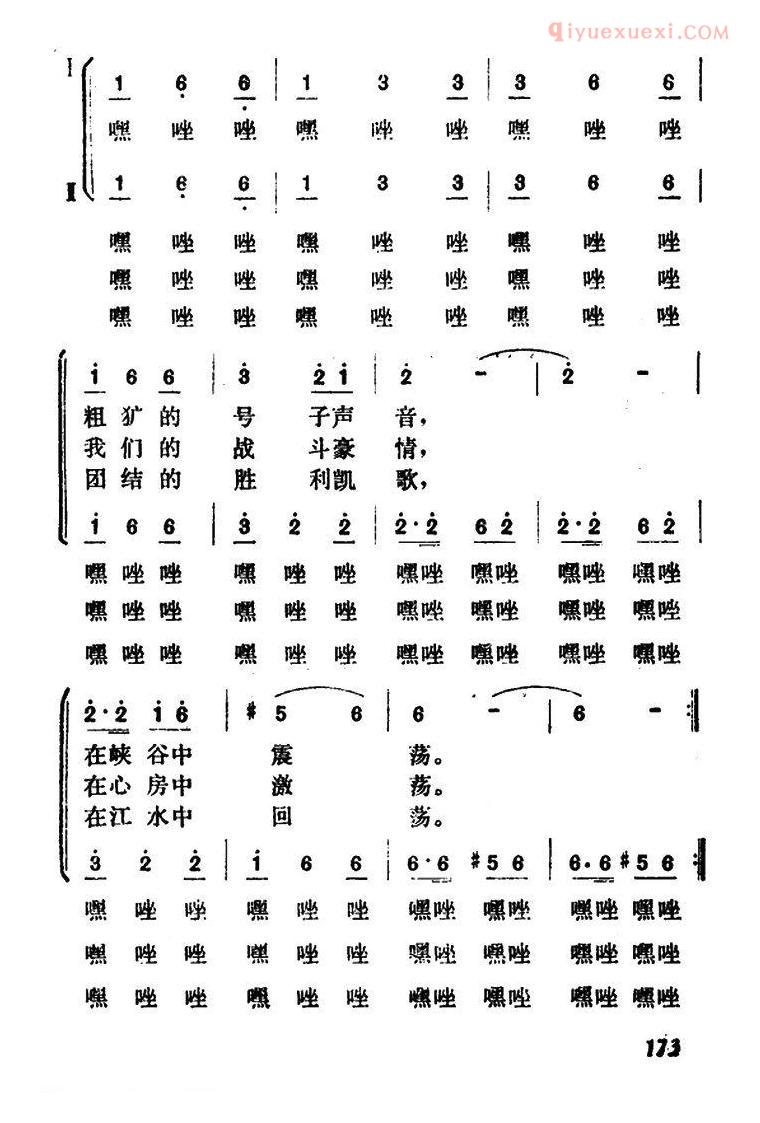 qiyuexuexi.COM
I 1 6 6 | 1 3 3 | 3 6 6 |
嘿 唑 唑 嘿 唑 唑 嘿 唑 唑
II 1 6 6 | 1 3 3 | 3 6 6 |
嘿 唑 唑 嘿 唑 唑 嘿 唑 唑
嘿 唑 唑 嘿 唑 唑 嘿 唑 唑
嘿 唑 唑 嘿 唑 唑 嘿 唑 唑
1 6 6 | 3 2 1 | 2 - | 2 - |
粗 犷 的 号 子 声 音,
我 们 的 战 斗 豪 情,
团 结 的 胜 利 凯 歌,
1 6 6 | 3 2 2 | 2·2 6 2 | 2·2 6 2 |
嘿 唑 唑 嘿 唑 唑 嘿唑 嘿唑 嘿唑 嘿唑
嘿 唑 唑 嘿 唑 唑 嘿唑 嘿唑 嘿唑 嘿唑
嘿 唑 唑 嘿 唑 唑 嘿唑 嘿唑 嘿唑 嘿唑
2·2 1 6 | #5 6 | 6 - | 6 - :||
在峡 谷中 震 荡。
在心 房中 激 荡。
在江 水中 回 荡。
3 2 2 | 1 6 6 | 6·6 #5 6 | 6·6 #5 6 :||
嘿 唑 唑 嘿 唑 唑 嘿唑 嘿唑 嘿唑 嘿唑
嘿 唑 唑 嘿 唑 唑 嘿唑 嘿唑 嘿唑 嘿唑
嘿 唑 唑 嘿 唑 唑 嘿唑 嘿唑 嘿唑 嘿唑
173